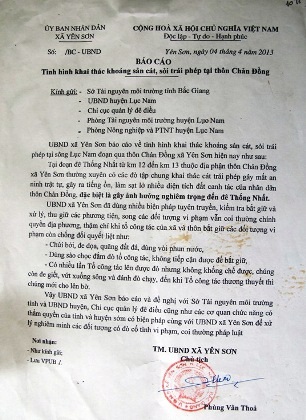 ỦY BAN NHÂN DÂN
XÃ YÊN SƠN
CỘNG HOÀ XÃ HỘI CHỦ NGHĨA VIỆT NAM
Độc lập - Tự do - Hạnh phúc
Số: /BC - UBND
Yên Sơn, ngày 04 tháng 4 năm 2013
BÁO CÁO
Tình hình khai thác khoáng sản cát, sỏi trái phép tại thôn Chản Đồng
Kính gửi: - Sở Tài nguyên môi trường tỉnh Bắc Giang
- UBND huyện Lục Nam
- Chi cục quản lý đê điều
- Phòng Tài nguyên môi trường huyện Lục Nam
- Phòng Nông nghiệp và PTNT huyện Lục Nam
UBND xã Yên Sơn báo cáo về tình hình khai thác khoáng sản cát, sỏi trái
phép tại sông Lục Nam đoạn qua thôn Chản Đồng xã Yên Sơn hiện nay như sau:
Tại đoạn đê Thống Nhất từ km 12 đến km 13 thuộc địa phận thôn Chản Đồng
xã Yên Sơn thường xuyên có các đò tập chung khai thác cát trái phép gây mất an
ninh trật tự, gây ra tiếng ồn, làm sạt lở nhiều diện tích đất canh tác của nhân dân
thôn Chản Đồng, đặc biệt là gây ảnh hưởng nghiêm trọng đến đê Thống Nhất.
UBND xã Yên Sơn đã dùng nhiều biện pháp tuyên truyền, kiểm tra bắt giữ và
xử lý, thu giữ các phương tiện, song các đối tượng vi phạm vẫn coi thường chính
quyền địa phương, thậm chí khi tổ công tác của xã và thôn bắt giữ các đối tượng vi
phạm còn chống đối quyết liệt như:
- Chửi bới, đe dọa, quăng đất đá, dùng vòi phun nước,
- Dùng sào chọc đâm đò tổ công tác, không tiếp cận được để bắt giữ,
- Có nhiều lần Tổ công tác lên được đò nhưng không khống chế được, chúng
còn đe giết, vứt xuống sông và đánh đò chạy, đến khi Tổ công tác thương thuyết thì
chúng mới cho lên bờ.
Vậy UBND xã Yên Sơn báo cáo và đề nghị với Sở Tài nguyên môi trường
tỉnh và UBND huyện, Chi cục quản lý đê điều cũng như các cơ quan chức năng có
thẩm quyền của tỉnh và huyện sớm có biện pháp cùng với UBND xã Yên Sơn để xử
lý nghiêm minh các đối tượng có cố tình vi phạm, coi thường pháp luật
Nơi nhận:
- Như kính gửi;
- Lưu VPUB /.
TM. UBND XÃ YÊN SƠN
Chủ tịch
Phùng Văn Thoả